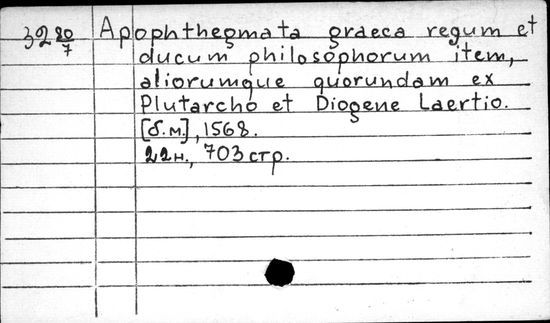 32 20/7 Apophthegmata graeca regum et
ducum philosophorum item,
aliorumque quorundam ex
Plutarcho et Diogene Laertio.
[б.м.], 1568.
22н., 703 стр.